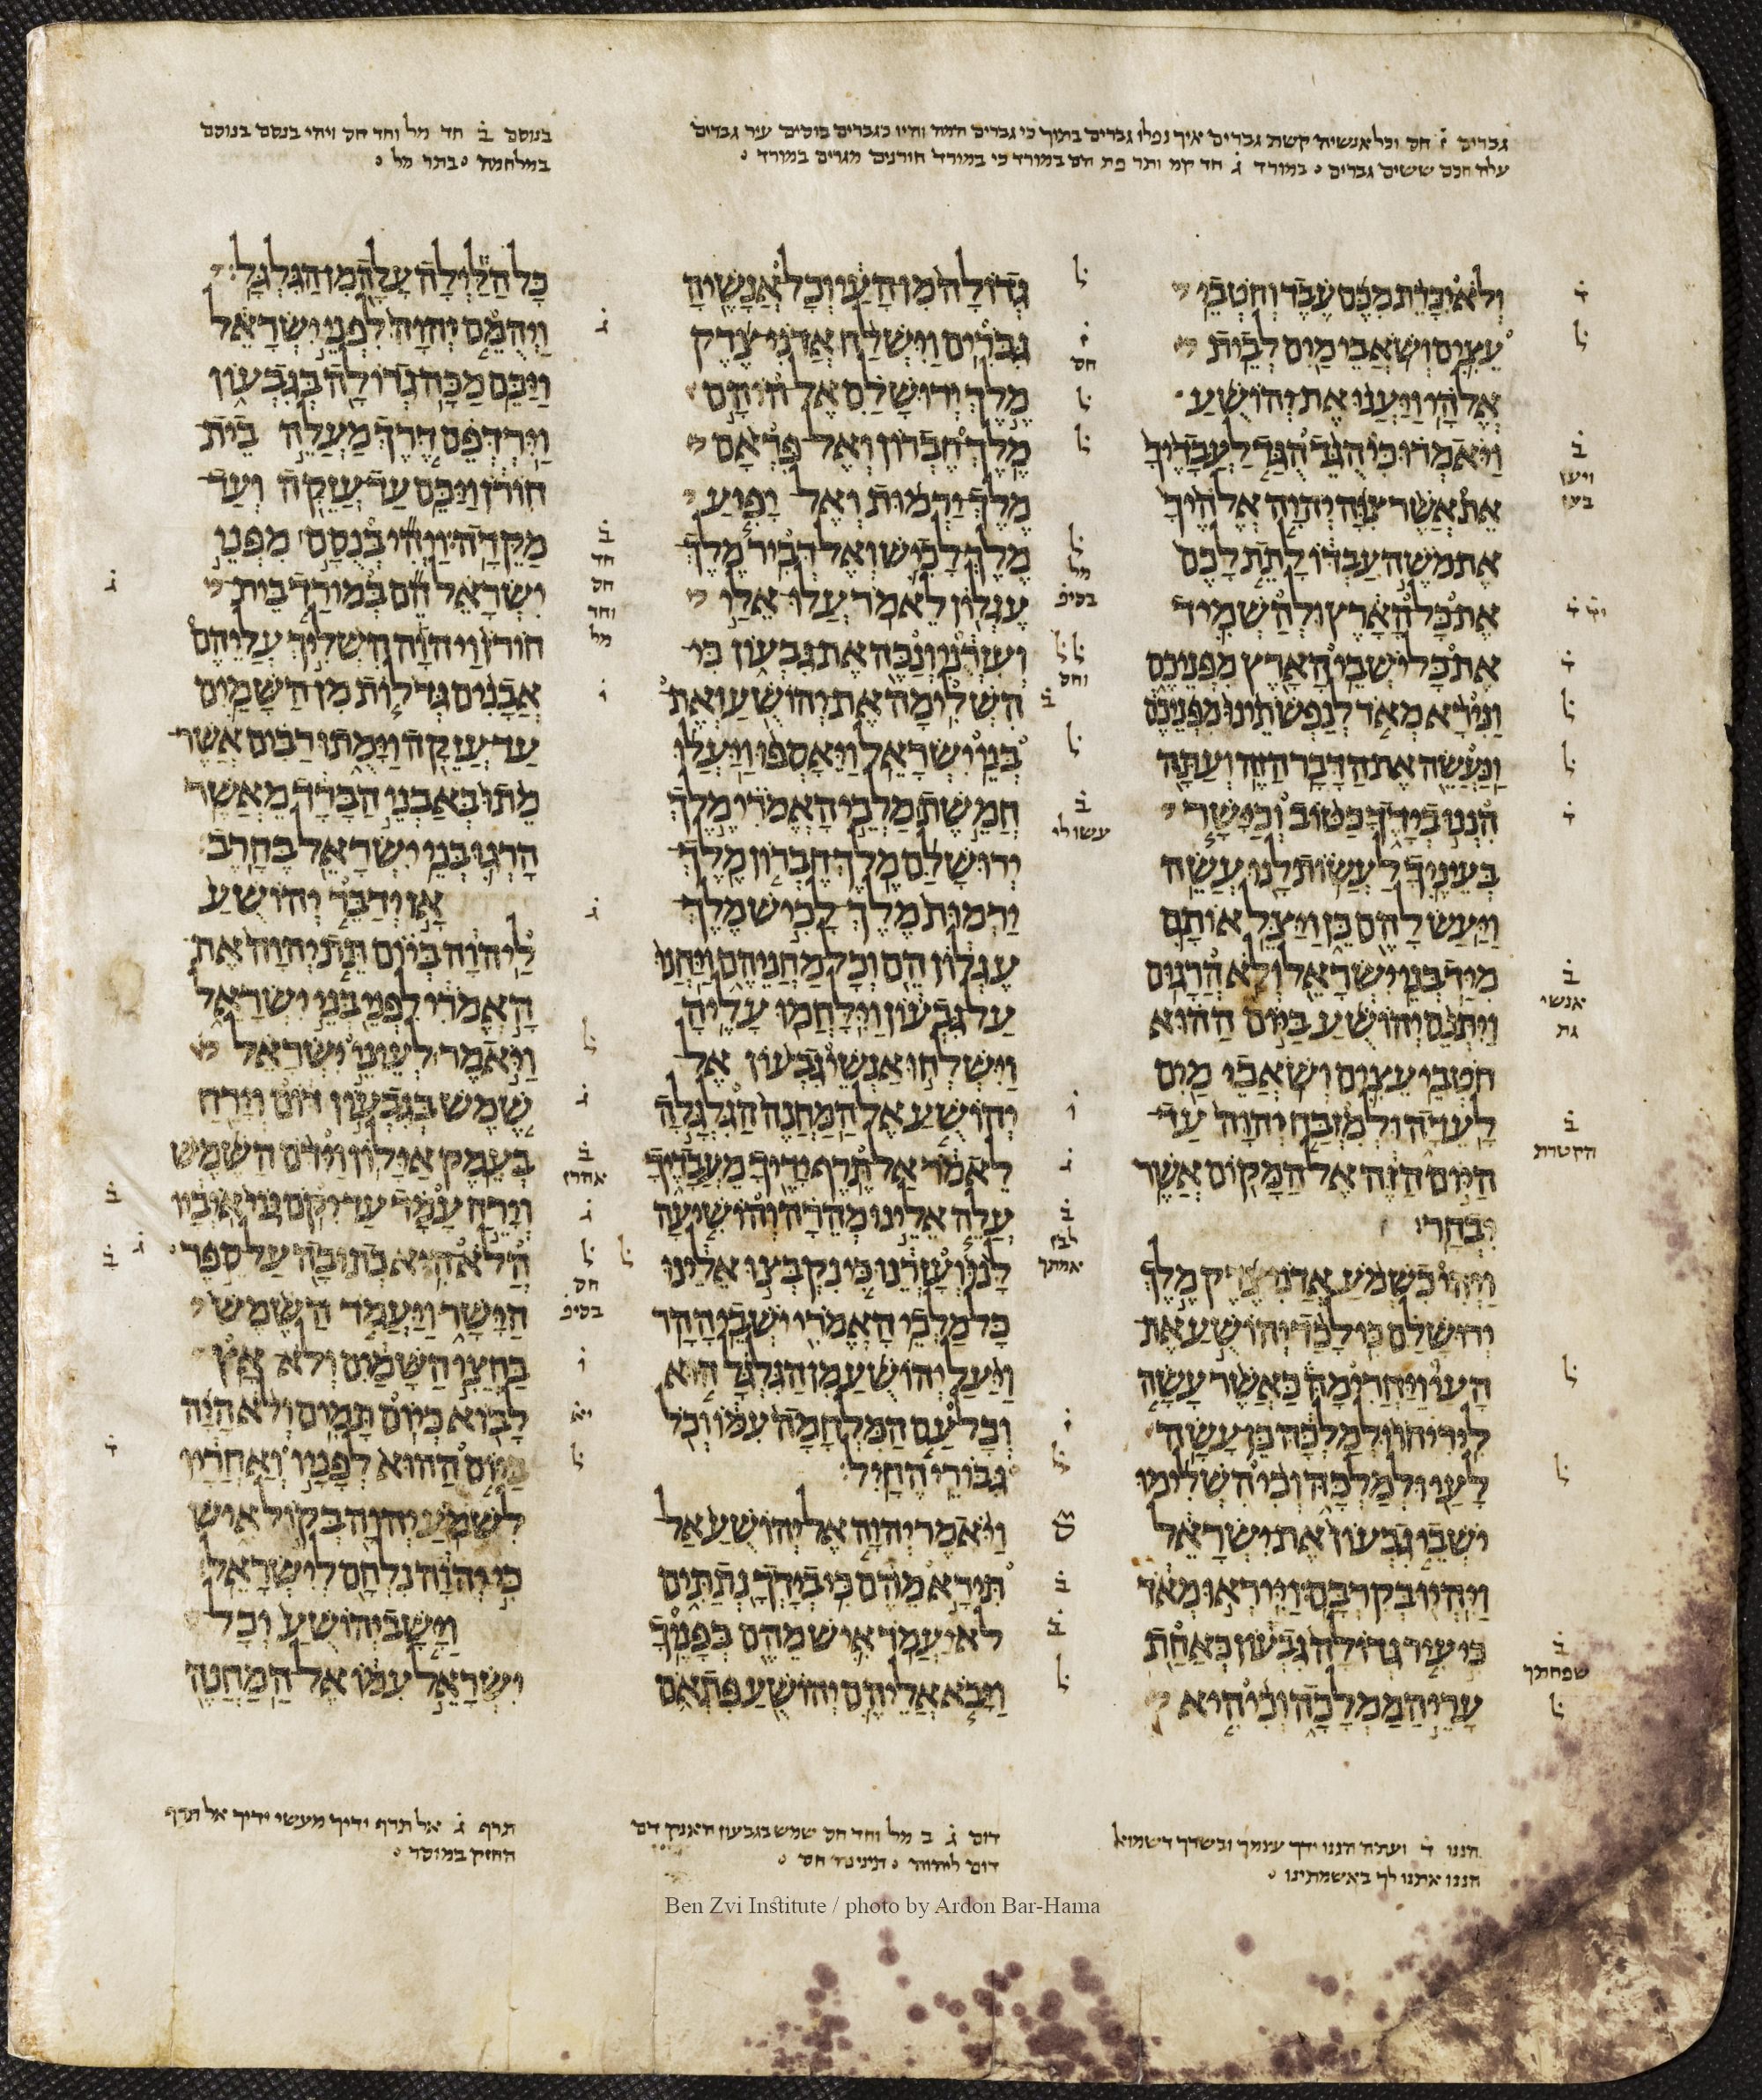 גברים ז חס וכל אנשיה קשת גברים איך נפלו גברים בתוך כי גברים המה והיו כגברים בוסים עיר גברים
עלה חכם ששים גברים ∘ במורד ג חד קמ ותר פת הם במורד כי במורד חורנים מגרים במורד ∘
בנוסם ב חד מל וחד חס ויהי בנסם בנוסם
במלחמה ∘ בתר מל ∘
ולא יכרת מכם עבד וחטבי
עצים ושאבי מים לבית
אלהי ויענו את יהושע
ויאמרו כי הגד הגד לעבדיך
את אשר צוה יהוה אלהיך
את משה עבדו לתת לכם
את כל הארץ ולהשמיד
את כל ישבי הארץ מפניכם
ונירא מאד לנפשתינו מפניכם
ונעשה את הדבר הזה ועתה
הננו בידך כטוב וכישר
בעיניך לעשות לנו עשה
ויעש להם כן ויצל אותם
מיד בני ישראל ולא הרגום
ויתנם יהושע ביום ההוא
חטבי עצים ושאבי מים
לעדה ולמזבח יהוה עד
היום הזה אל המקום אשר
יבחר
ויהי כשמע אדני צדק מלך
ירושלם כי לכד יהושע את
העי ויחרימה כאשר עשה
ליריחו ולמלכה כן עשה
לעי ולמלכה וכי השלימו
ישבי גבעון את ישראל
ויהיו בקרבם וייראו מאד
כי עיר גדולה גבעון כאחת
ערי הממלכה וכי היא
ד
ל
ב
ויען
בעז
ד
ד
ל
ל
ד
ב
אנשי
גת
ב
הקטרת
ל
ל
ב
שפחתך
ל
גדולה מן העי וכל אנשיה
גברים וישלח אדני צדק
מלך ירושלם אל הוהם
מלך חברון ואל פראם
מלך ירמות ואל יפיע
מלך לכיש ואל דביר מלך
עגלון לאמר עלו אלי
ועזרני ונכה את גבעון כי
השלימה את יהושע ואת
בני ישראל ויאספו ויעלו
חמשת מלכי האמרי מלך
ירושלם מלך חברון מלך
ירמות מלך לכיש מלך
עגלון הם וכל מחניהם ויחנו
על גבעון וילחמו עליה
וישלחו אנשי גבעון אל
יהושע אל המחנה הגלגלה
לאמר אל תרף ידיך מעבדיך
עלה אלינו מהרה והושיעה
לנו ועזרנו כי נקבצו אלינו
כל מלכי האמרי ישבי ההר
ויעל יהושע מן הגלגל הוא
וכל עם המלחמה עמו וכל
גבורי החיל
ויאמר יהוה אל יהושע אל
תירא מהם כי בידך נתתים
לא יעמד איש מהם בפניך
ויבא אליהם יהושע פתאם
ל
ז
חס
ל
ל
ל
מל
בסיפ
ל ל
וחס
ב
ל
ב
עשו לי
ו
ג
ב
לבן
אמתך
ל
ב
ב
ל
כל הלילה עלה מן הגלגל
ויהמם יהוה לפני ישראל
ויכם מכה גדולה בגבעון
וירדפם דרך מעלה בית
חורן ויכם עד עזקה ועד
מקדה ויהי בנסם מפני
ישראל הם במורד בית
חורן ויהוה השליך עליהם
אבנים גדלות מן השמים
עד עזקה וימתו רבים אשר
מתו באבני הברד מאשר
הרגו בני ישראל בחרב
אז ידבר יהושע
ליהוה ביום תת יהוה את
האמרי לפני בני ישראל
ויאמר לעיני ישראל
שמש בגבעון דום וירח
בעמק אילון וידם השמש
וירח עמד עד יקם גוי איביו
הלא היא כתובה על ספר
הישר ויעמד השמש
בחצי השמים ולא אץ
לבוא כיום תמים ולא היה
כיום ההוא לפניו ואחריו
לשמע יהוה בקול איש
כי יהוה נלחם לישראל
וישב יהושע וכל
ישראל עמו אל המחנה
ג
ב
חד
חס
וחד
מל
ו
ג
ל
ג
ב
אחרין
ג
ל
חס
בסיפ
ו
יא
ל
ג
ב
ג
ב
ד
הננו ד ועתה הננו ידך עצמך ובשרך דשמוא
הננו אתנו לך באשמתינו ∘
דום ג ב מל וחד חס שמש בגבעון האנק דם
דום ליהוה ∘
תרף ג אל תרף ידיך מעשי ידיך אל תרף
החזק במוסר ∘
Ben Zvi Institute / photo by Ardon Bar-Hama